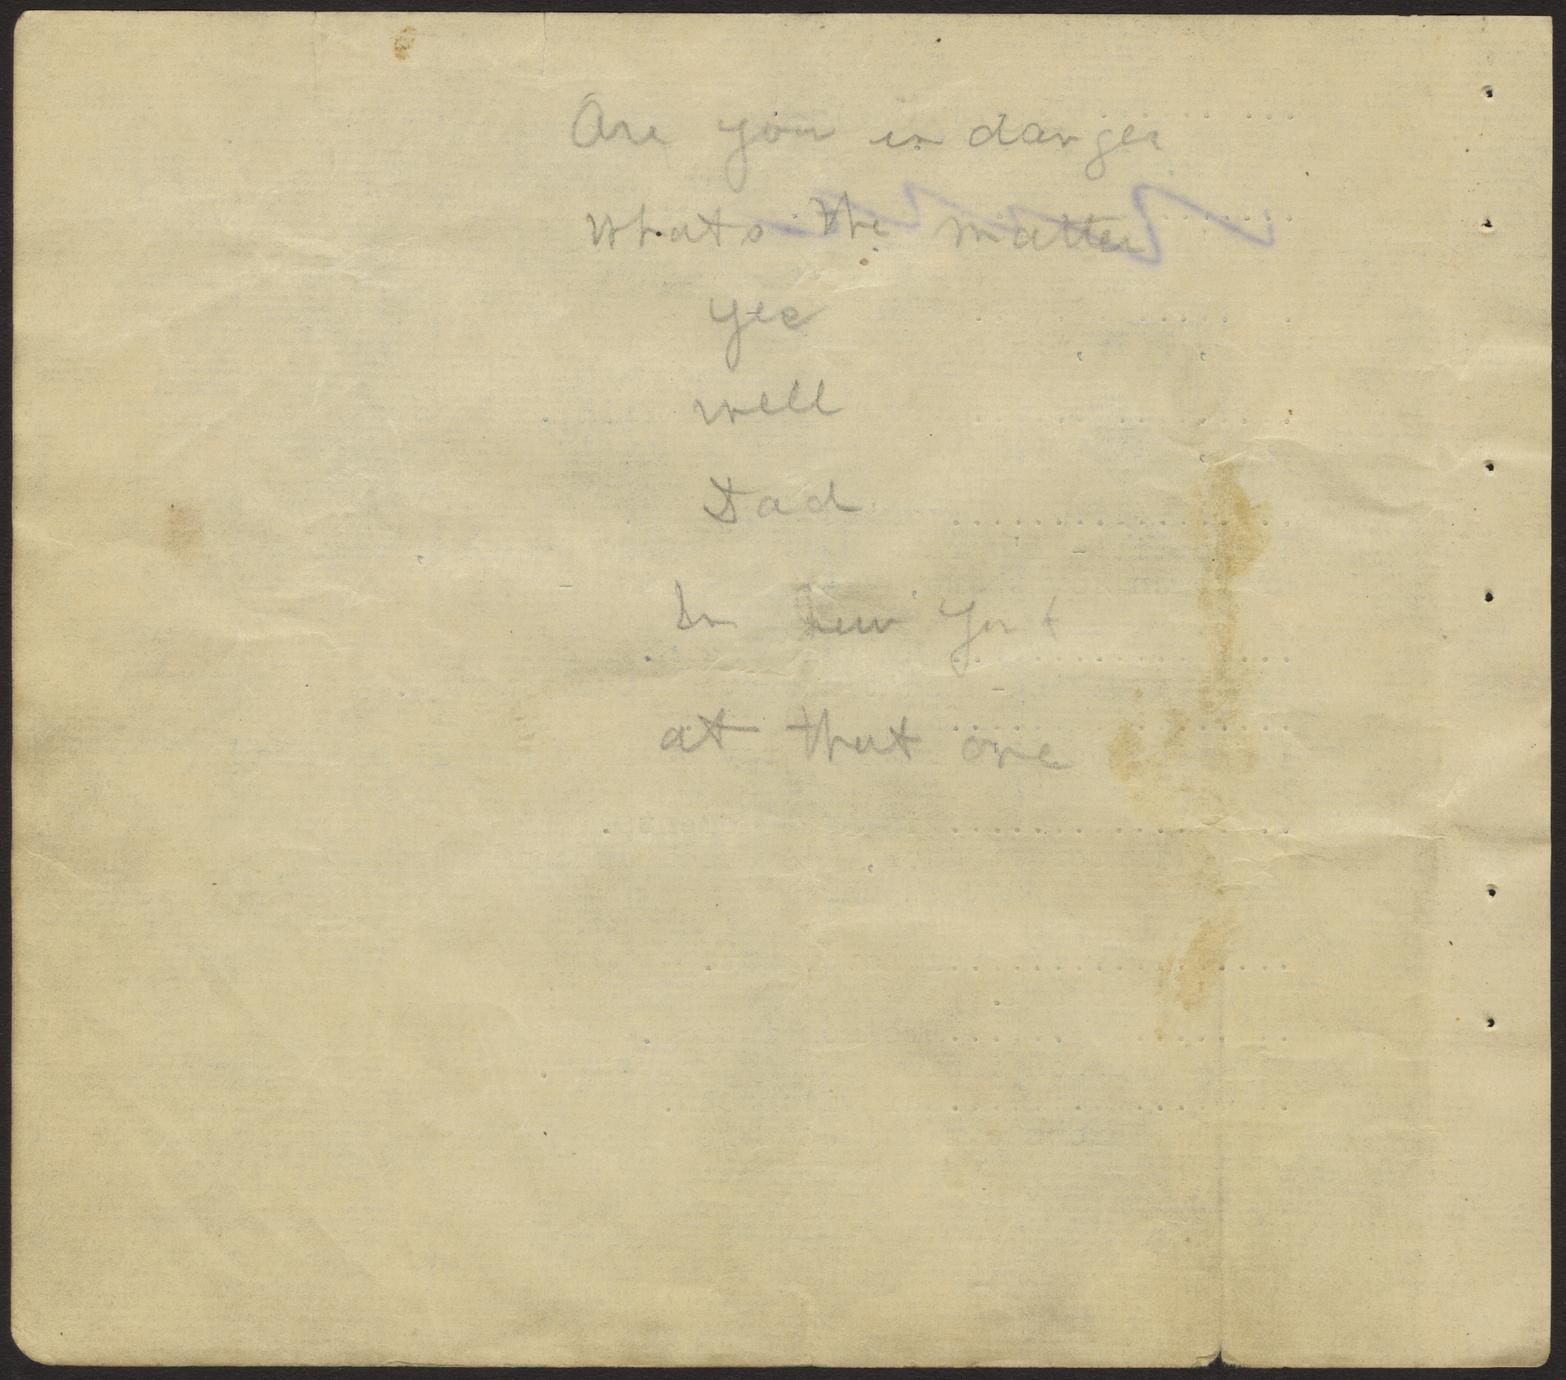 Are you in danger
Whats the matter
yes
well
Dad
In New York
at that one